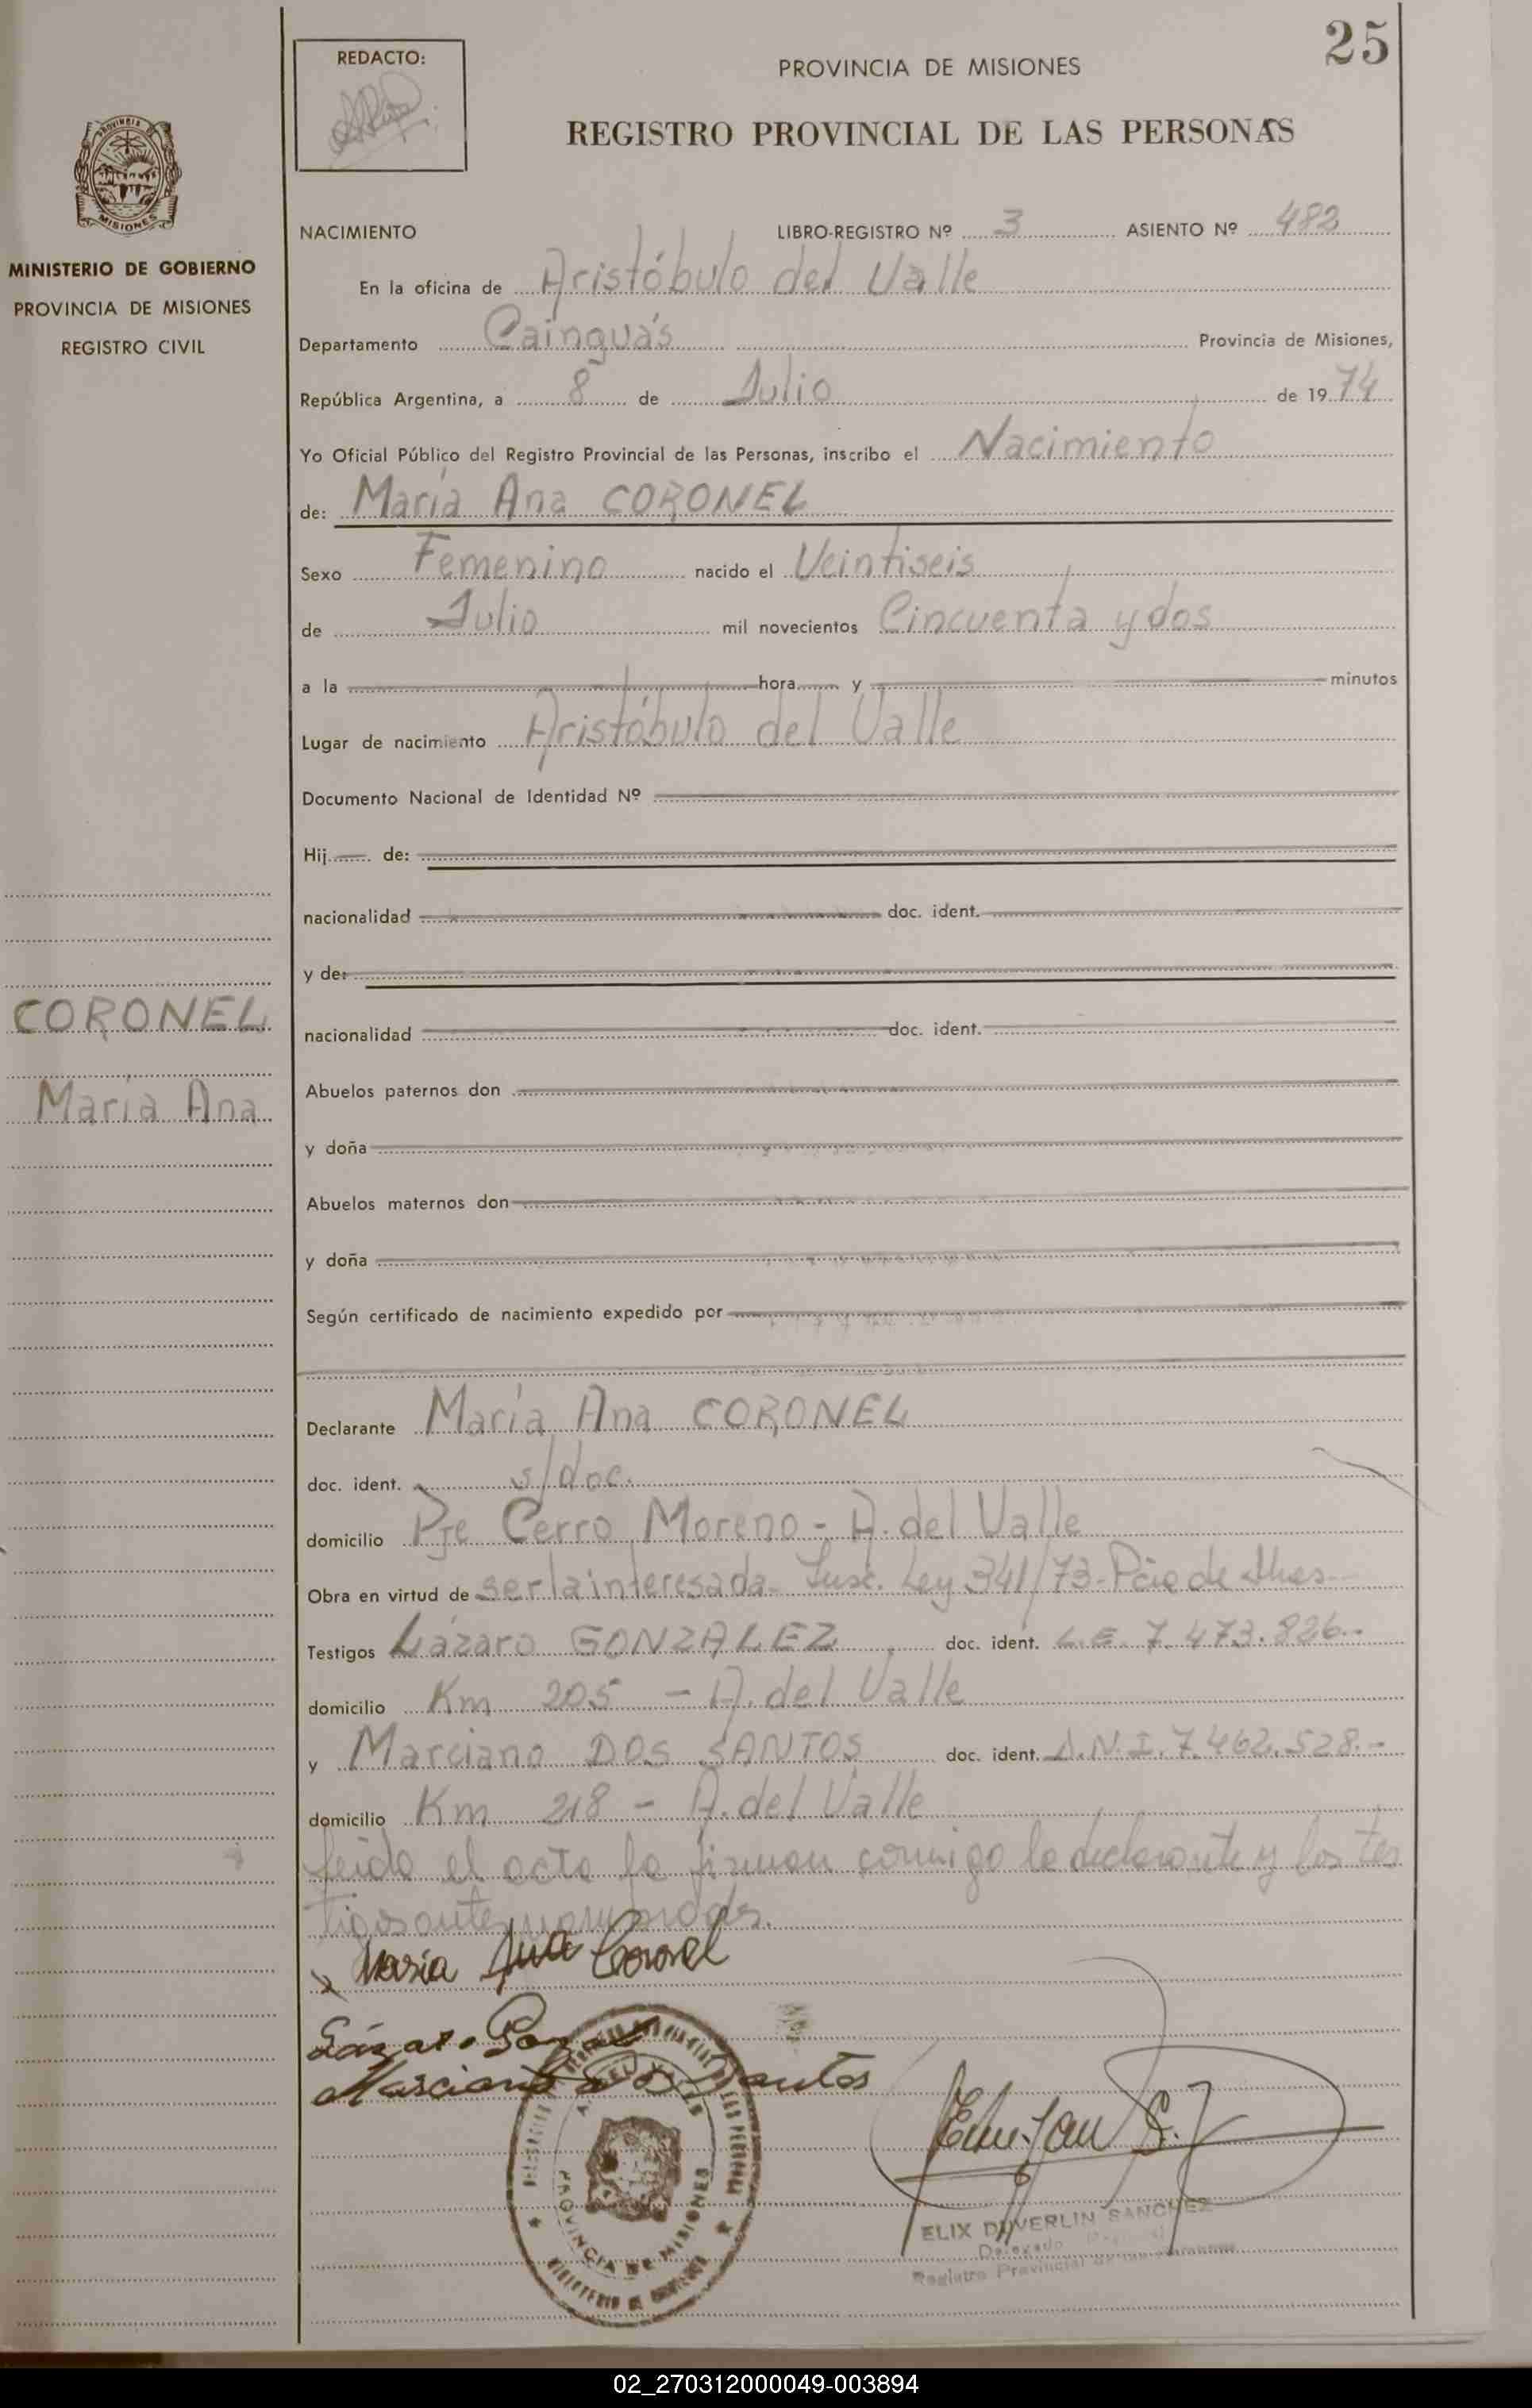 25
REDACTO:
PROVINCIA DE MISIONES
REGISTRO PROVINCIAL DE LAS PERSONAS
PROVINCIA DE
MISIONES
MINISTERIO DE GOBIERNO
PROVINCIA DE MISIONES
REGISTRO CIVIL
NACIMIENTO LIBRO-REGISTRO Nº 3 ASIENTO Nº 482
En la oficina de Aristóbulo del Valle
Departamento Cainguás Provincia de Misiones,
República Argentina, a 8 de Julio de 1974
Yo Oficial Público del Registro Provincial de las Personas, inscribo el Nacimiento
de: María Ana CORONEL
Sexo Femenino nacido el Veintiseis
de Julio mil novecientos Cincuenta y dos
a la hora y minutos
Lugar de nacimiento Aristóbulo del Valle
Documento Nacional de Identidad Nº
Hij de:
nacionalidad doc. ident.
y de:
nacionalidad doc. ident.
CORONEL
María Ana
Abuelos paternos don
y doña
Abuelos maternos don
y doña
Según certificado de nacimiento expedido por
Declarante María Ana CORONEL
doc. ident. s/doc.
domicilio Pje Cerro Moreno - A. del Valle
Obra en virtud de ser la interesada - Insc. Ley 341/73 - Pcia de Mnes
Testigos Lázaro GONZALEZ doc. ident. L.E. 7.473.826.-
domicilio Km 205 - A. del Valle
y Marciano DOS SANTOS doc. ident. D.N.I. 7.462.528.-
domicilio Km 218 - A. del Valle
Leída el acta la firman conmigo la declarante y los tes
tigos antes nombrados.
x María Ana Coronel
Lázaro
Marciano Dos Santos
PROVINCIA DE MISIONES
ELIX DUVERLIN SANCHEZ
Delegado
Registro Provincial de las Personas
02_270312000049-003894